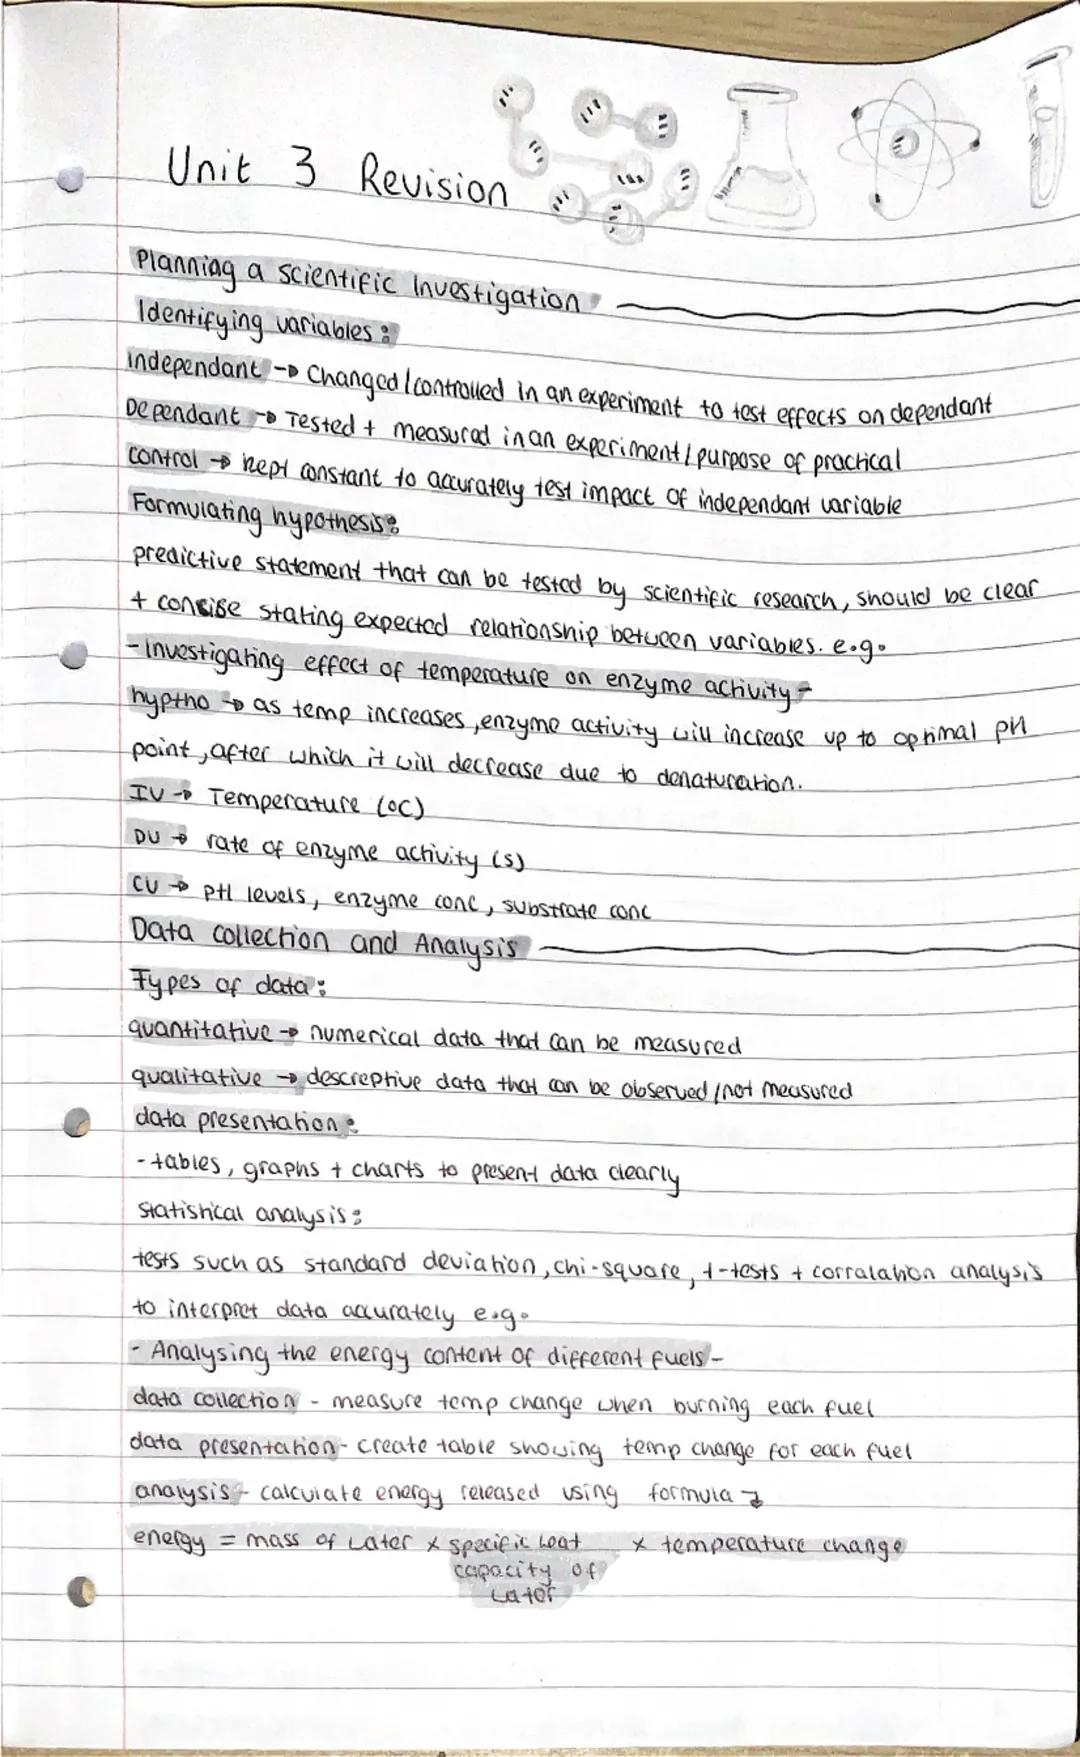 Unit 3 Revision
Planning a scientific Investigation
Identifying variables:
independant → Changed/controlled in an experiment to test effects on dependant
Dependant → Tested + measured in an experiment/purpose of practical
control → kept constant to accurately test impact of independant variable
Formulating hypothesis:
predictive statement that can be tested by scientific research, should be clear
+ concise stating expected relationship between variables. e.g.
- Investigating effect of temperature on enzyme activity -
hyptho → as temp increases, enzyme activity will increase up to optimal pH
point, after which it will decrease due to denaturation.
IV → Temperature (°C)
DV → rate of enzyme activity (s)
CV → pH levels, enzyme conc, substrate conc
Data collection and Analysis
Types of data:
quantitative → numerical data that can be measured
qualitative → descreptive data that can be observed/not measured
data presentation:
- tables, graphs + charts to present data clearly
statistical analysis:
tests such as standard deviation, chi-square, t-tests + corralation analysis
to interpret data accurately e.g.
- Analysing the energy content of different fuels -
data collection - measure temp change when burning each fuel
data presentation - create table showing temp change for each fuel
analysis - calculate energy released using formula ↓
energy = mass of water × specific heat × temperature change
capacity of
water